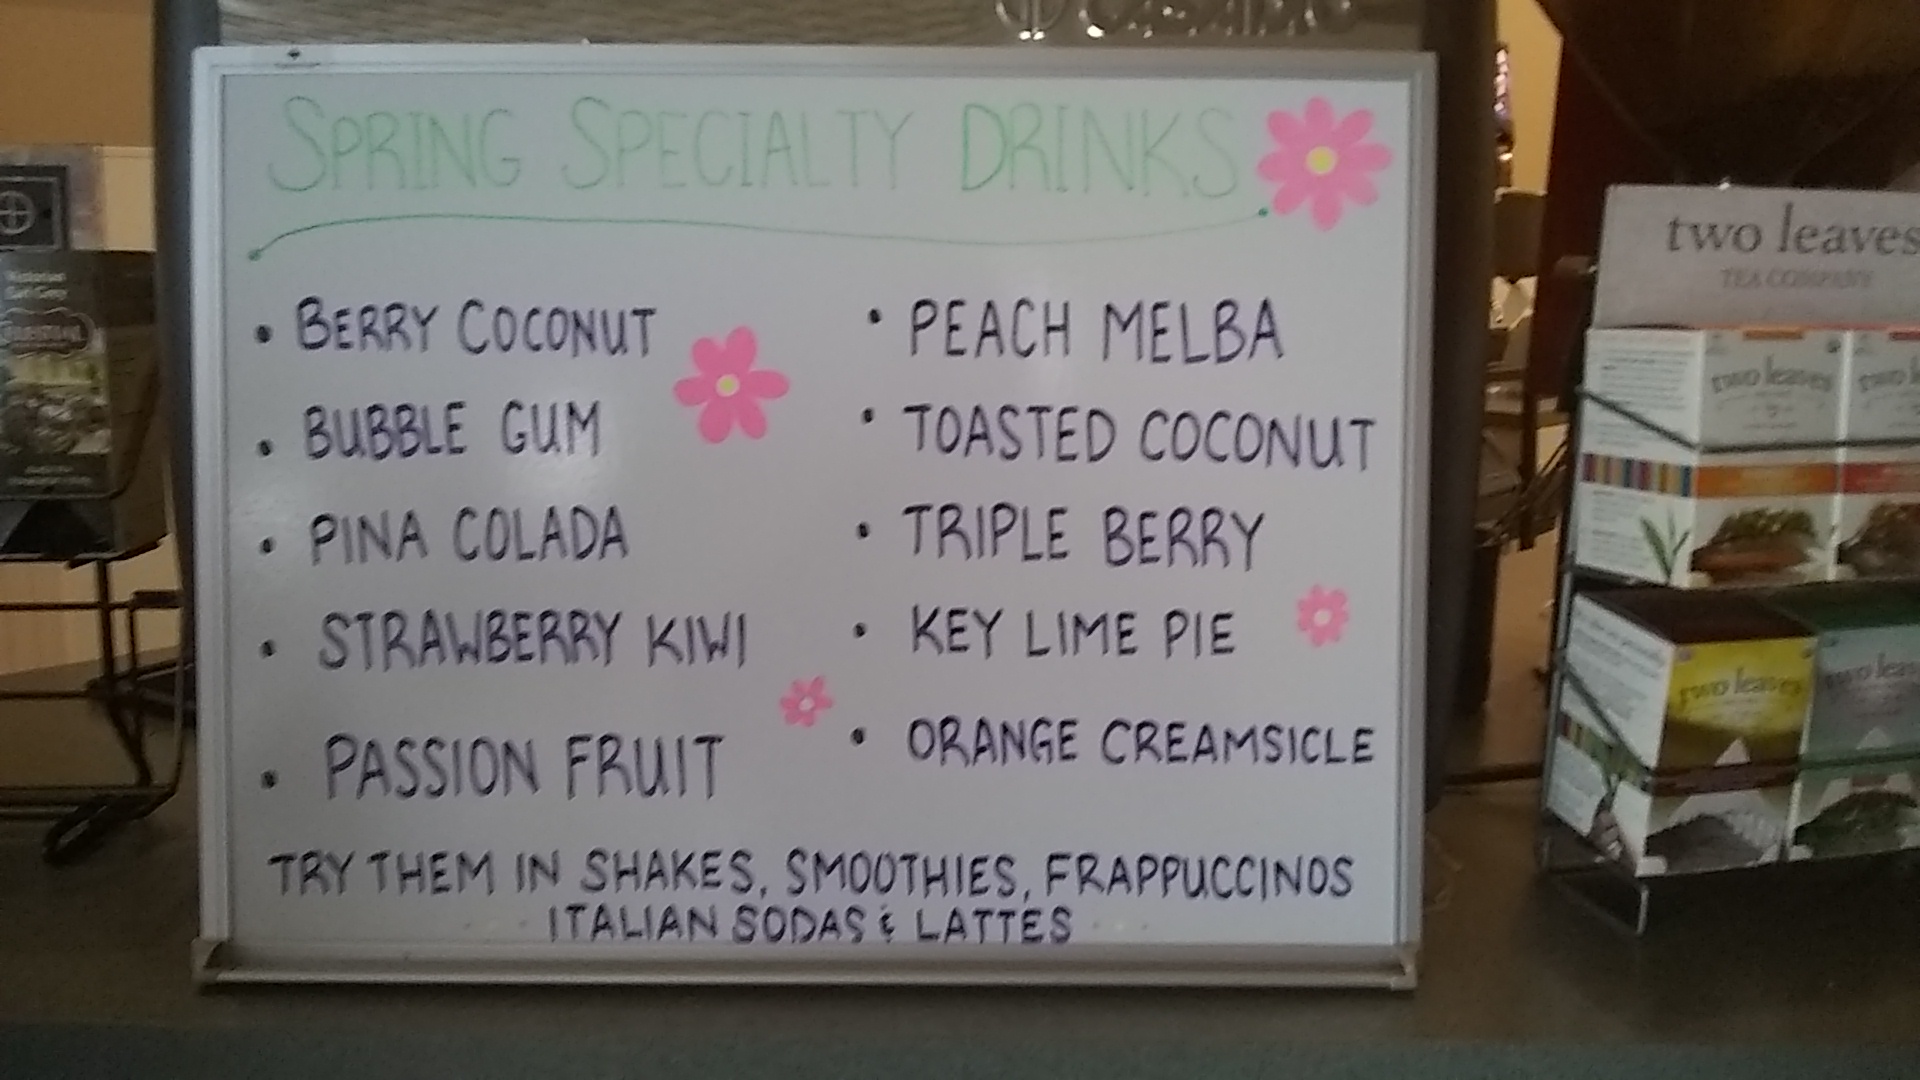 SPRING SPECIALTY DRINKS
• BERRY COCONUT
• BUBBLE GUM
• PINA COLADA
• STRAWBERRY KIWI
• PASSION FRUIT
• PEACH MELBA
• TOASTED COCONUT
• TRIPLE BERRY
• KEY LIME PIE
• ORANGE CREAMSICLE
TRY THEM IN SHAKES, SMOOTHIES, FRAPPUCCINOS
ITALIAN SODAS & LATTES
two leaves
TEA COMPANY
two leaves
two leaves
Victorian
Earl Grey